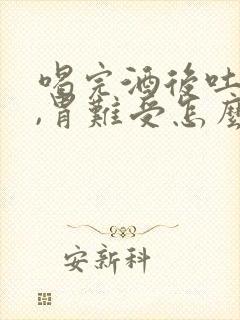 喝完酒後吐
,胃難受怎麼
安新科